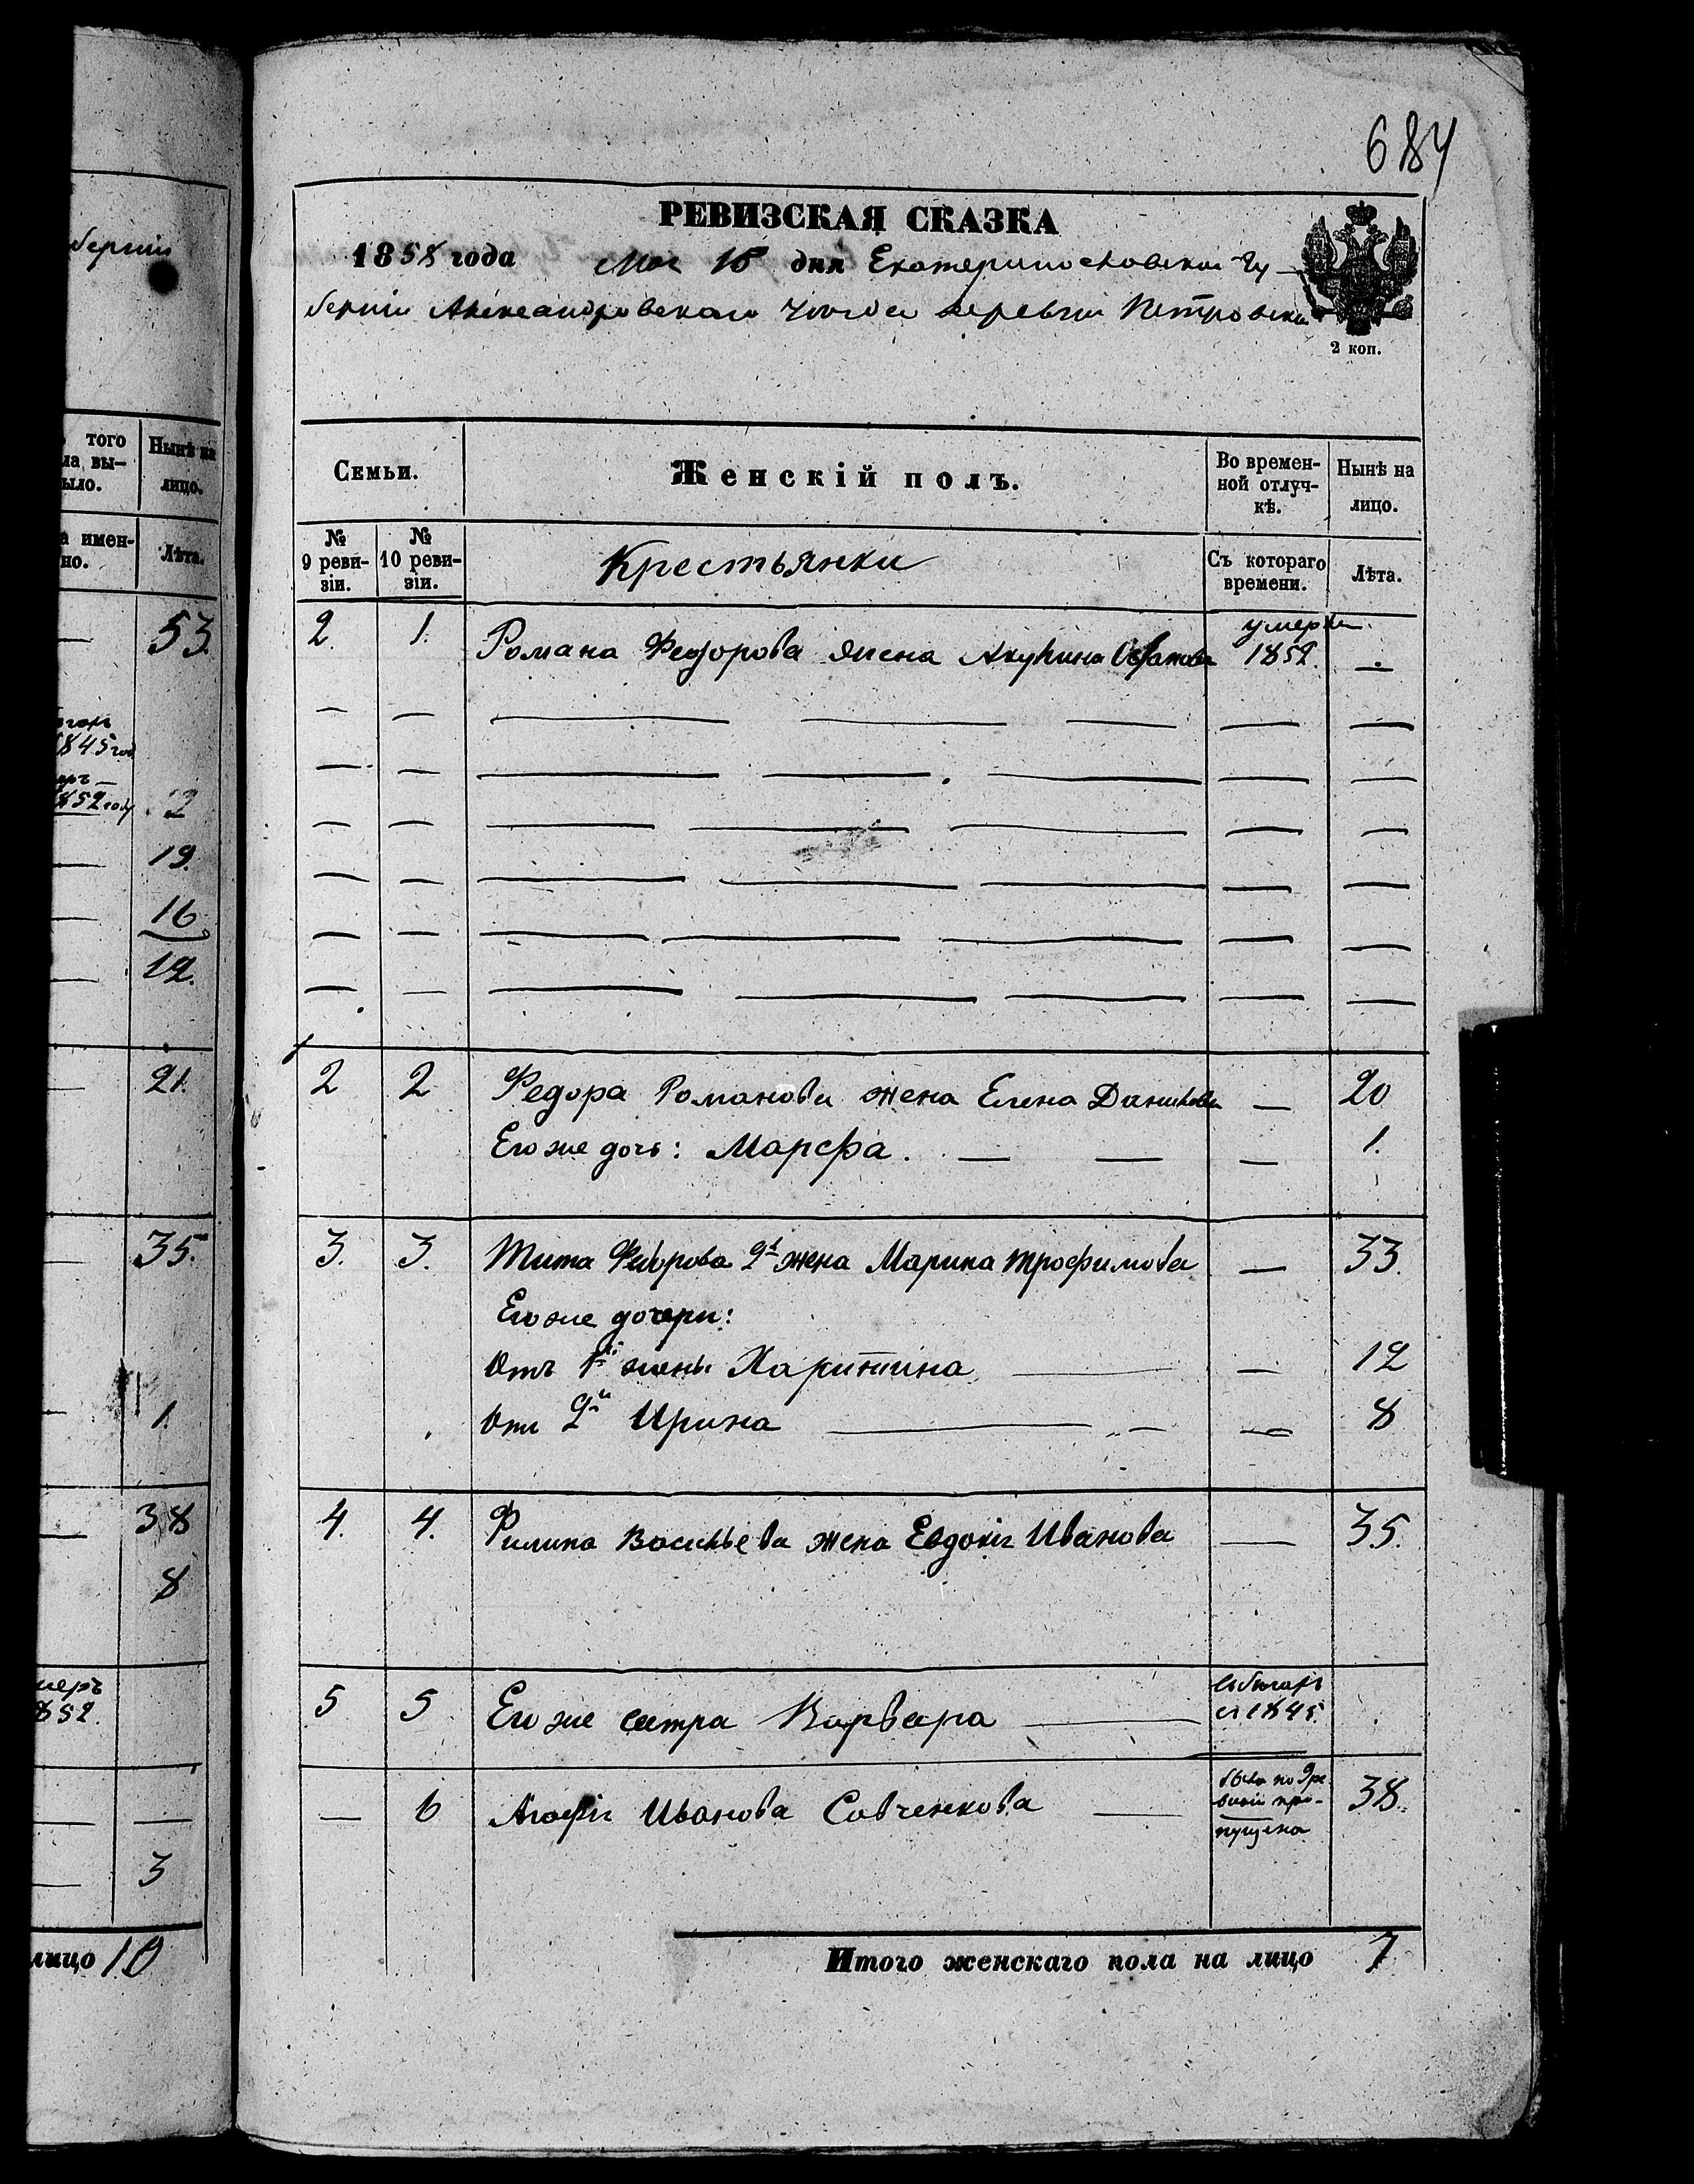 684
РЕВИЗСКАЯ СКАЗКА
1858 года Мая 15 дня Екатеринославской Гу-
берніи Александровскаго уѣзда деревни Петровки
2 коп.
Семьи. Женскій полъ. Во времен-ной отлуч-кѣ. Нынѣ на лицо.
№ 9 реви-зіи. № 10 реви-зіи. Крестьянки Съ котораго времени. Лѣта.
2. 1. Романа Федорова жена Акулина умерла 1852. —
2 2 Федора Романова жена Елена Данилова — 20
Его же дочь: Марефа. — — — 1.
3. 3. Тита Федорова 2я жена Марина Трофимова — 33.
Его же дочери:
Отъ 1й жены Харитина — — 12
Отъ 2й Ирина — — 8
4. 4. Филипа Васильева жена Евдокія Иванова — 35.
5 5 Его же сестра Варвара — въ бегахъ съ 1845
— 6 Агафія Иванова Савченкова — была по 9 ре-визіи про-пущена 38.
Итого женскаго пола на лицо 7
берніи
того
ла вы-
ыло.
Нынѣ на
лицо.
а имен-
но.
Лѣта.
— 53.
1845 год
1852 году 2
— 19.
— 16
— 12.
— 21.
— 35.
— 1.
— 38
8
меръ
1852.
— —
— 3
лицо 10